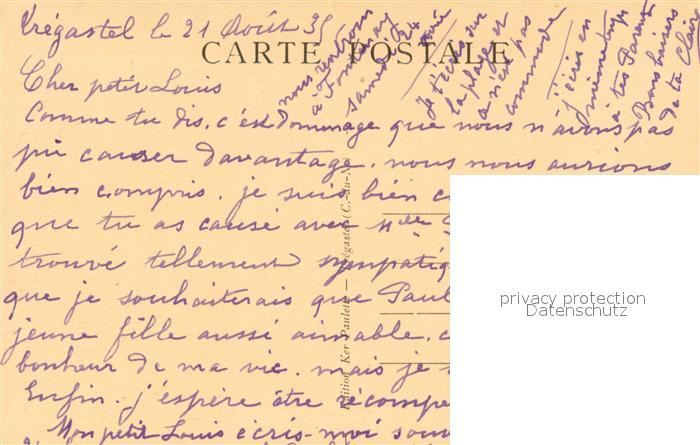 Trégastel le 21 Août 35
CARTE POSTALE
Cher petit Louis
Comme tu dis, c'est Dommage que nous n'avons pas
pu causer davantage. nous nous aurions
bien compris. je suis bien
que tu as causé avec Mlle
trouvé tellement sympatiq
que je souhaiterais que Paul
jeune fille aussi aimable.
bonheur de ma vie. mais je
Enfin. j'espère être récompe
Mon petit Louis écris-moi souv
nous rentrons
à
samedi 24
Je t'écris sur
la plage et
ce n'est pas
commode
J'écris en
même temps
à tes Parents
Bons baisers
de ta
Edition Ker Paulette — Trégastel (C.-du-N.)
privacy protection
Datenschutz